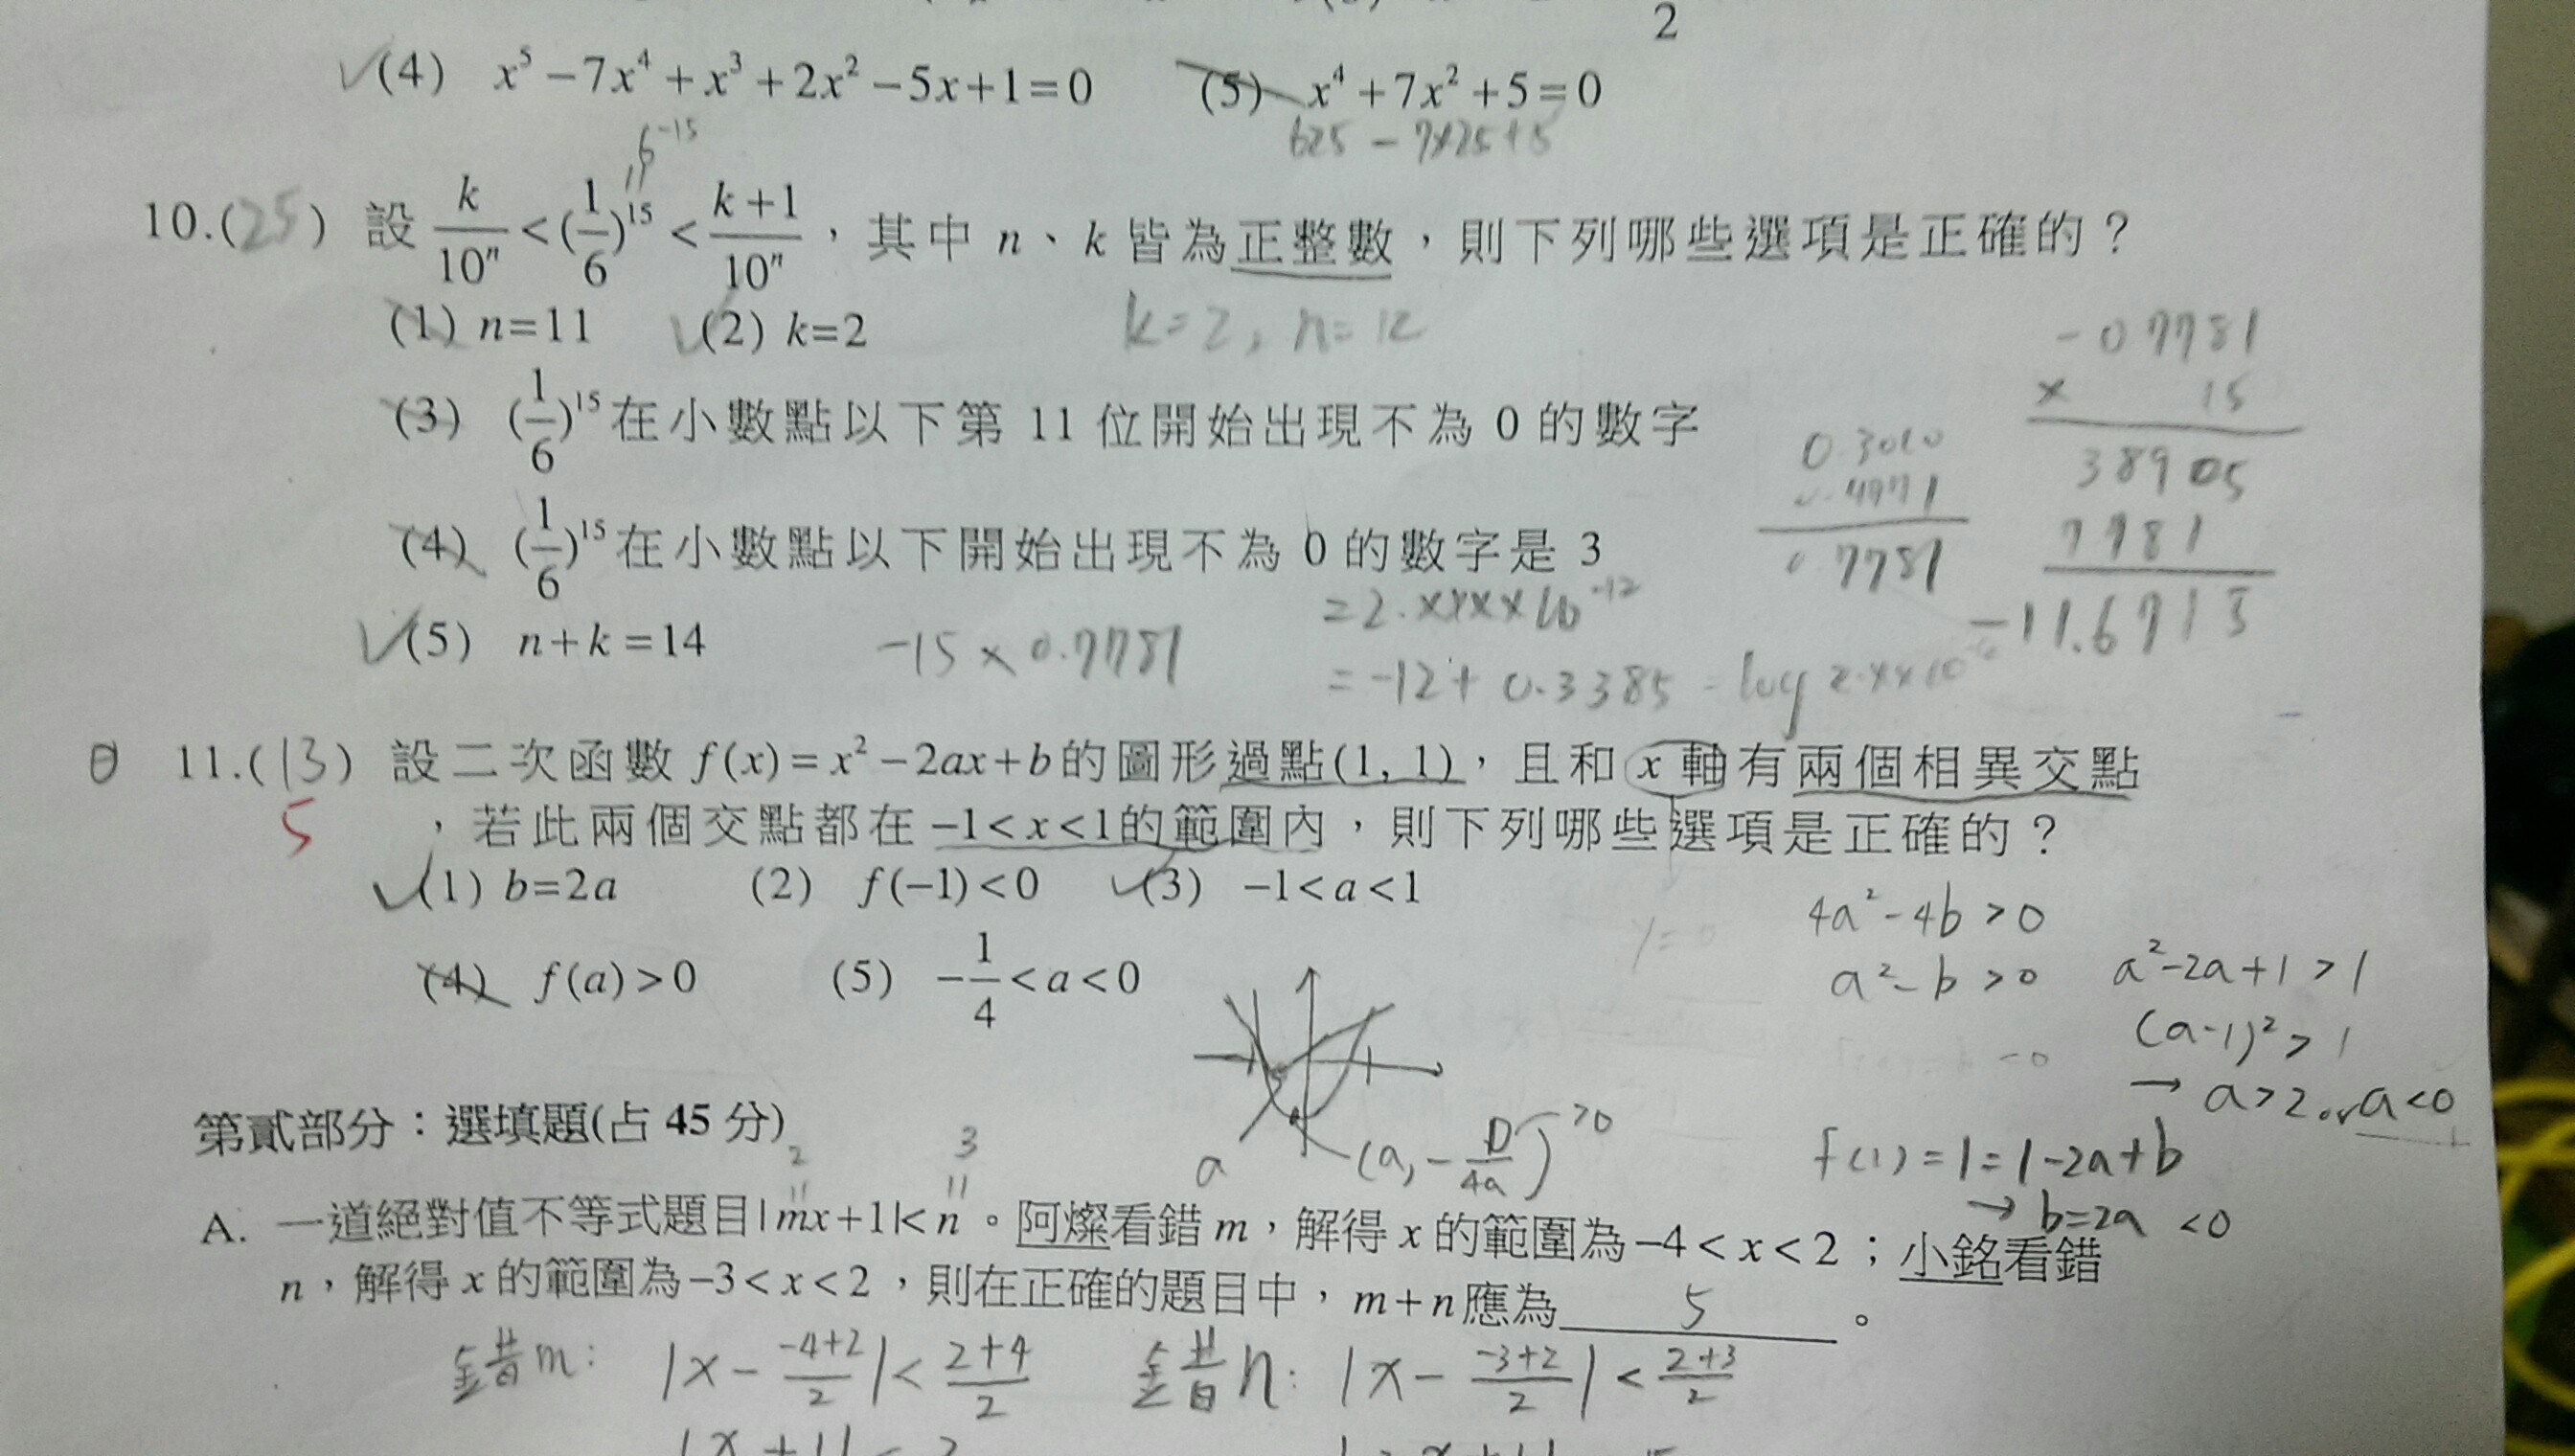 2
(4) x⁵−7x⁴+x³+2x²−5x+1=0 (5) x⁴+7x²+5=0
6⁻¹⁵ 625−7×25+5
10.(25) 設 k/10ⁿ<(1/6)¹⁵<(k+1)/10ⁿ，其中 n、k 皆為正整數，則下列哪些選項是正確的？
(1) n=11 (2) k=2 k=2, n=12
−0.7781
× 15
38905
7781
−11.6713
(3) (1/6)¹⁵在小數點以下第 11 位開始出現不為 0 的數字
0.3010
0.4771
0.7781
(4) (1/6)¹⁵在小數點以下開始出現不為 0 的數字是 3
=2.××××10⁻¹²
(5) n+k=14 −15×0.7781 =−12+0.3385
11.(13) 設二次函數 f(x)=x²−2ax+b的圖形過點(1, 1)，且和 x 軸有兩個相異交點
5 ，若此兩個交點都在−1<x<1的範圍內，則下列哪些選項是正確的？
(1) b=2a (2) f(−1)<0 (3) −1<a<1
(4) f(a)>0 (5) −1/4<a<0
4a²−4b>0
a²−b>0
a²−2a+1>1
(a−1)²>1
→ a>2 or a<0
f(1)=1=1−2a+b
→ b=2a <0
a (a, −D/4a) >0
第貳部分：選填題(占 45 分)
2 3
A. 一道絕對值不等式題目|mx+1|<n。阿燦看錯 m，解得 x 的範圍為−4<x<2；小銘看錯
n，解得 x 的範圍為−3<x<2，則在正確的題目中，m+n應為 5 。
錯m: |x−(−4+2)/2|<(2+4)/2 錯n: |x−(−3+2)/2|<(2+3)/2